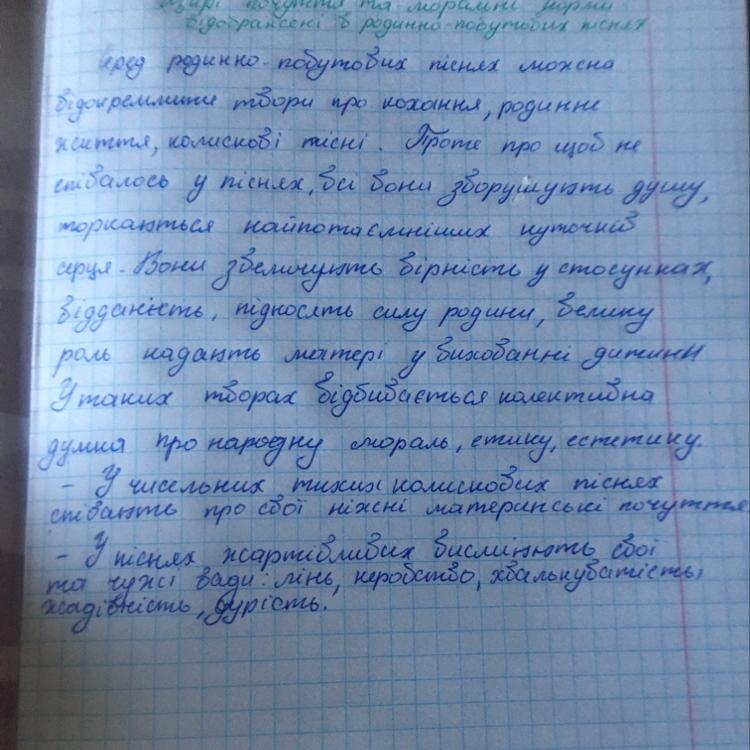 Щирі почуття та моральні норми
відображені в родинно-побутових піснях
Серед родинно-побутових піснях можна
відокремлити твори про кохання, родинне
життя, колискові пісні. Проте про щоб не
співалось у піснях, всі вони зворушують душу,
торкаються найпотаємніших куточків
серця. Вони звеличують вірність у стосунках,
відданість, підносять силу родини, велику
роль надають матері у вихованні дитини
У таких творах відбивається колективна
думка про народну мораль, етику, естетику.
- У чисельних тихих колискових піснях
співають про свої ніжні материнські почуття
- У піснях жартівливих висміюють свої
та чужі вади: лінь, неробство, хвалькуватість,
жадівність, дурість.